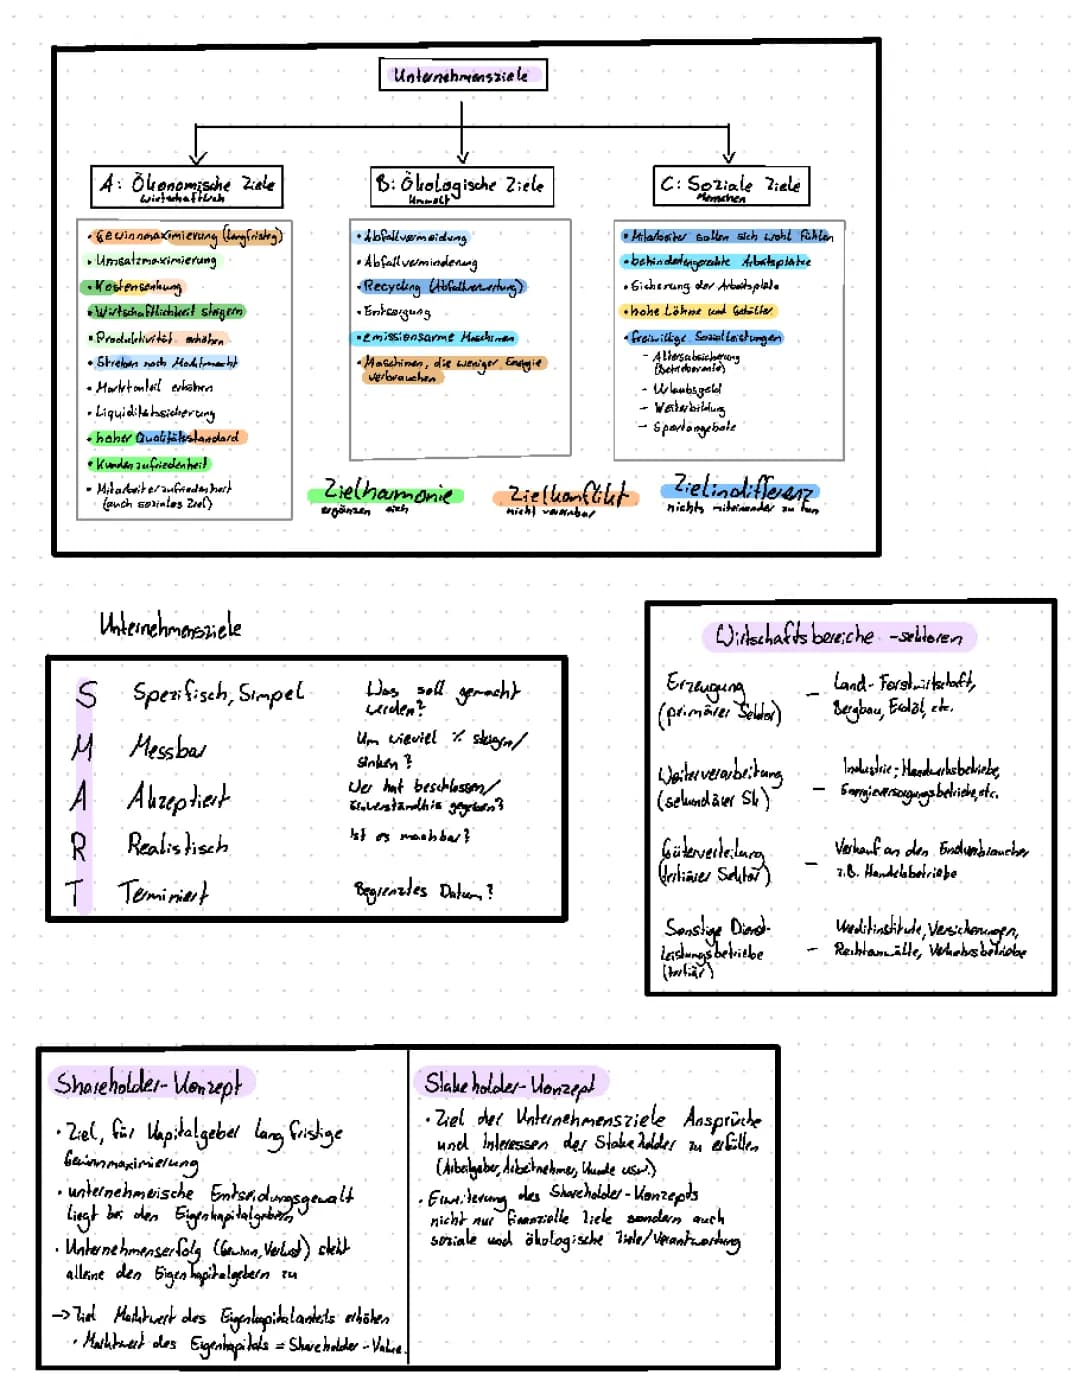 Unternehmensziele
A: Ökonomische Ziele
wirtschaftlich
• Gewinnmaximierung (langfristig)
• Umsatzmaximierung
• Kostensenkung
• Wirtschaftlichkeit steigern
• Produktivität erhöhen
• Streben nach Marktmacht
• Marktanteil erhöhen
• Liquiditätssicherung
• hoher Qualitätsstandard
• Kundenzufriedenheit
• Mitarbeiterzufriedenheit
(auch soziales Ziel)
B: Ökologische Ziele
Umwelt
• Abfallvermeidung
• Abfallverminderung
• Recycling (Abfallverwertung)
• Entsorgung
• emissionsarme Maschinen
• Maschinen, die weniger Energie
verbrauchen
C: Soziale Ziele
Menschen
• Mitarbeiter sollen sich wohl fühlen
• behindertengerechte Arbeitsplätze
• Sicherung der Arbeitsplätze
• hohe Löhne und Gehälter
• freiwillige Sozialleistungen
– Altersabsicherung
(Betriebsrente)
– Urlaubsgeld
– Weiterbildung
– Sportangebote
Zielharmonie
ergänzen sich
Zielkonflikt
nicht vereinbar
Zielindifferenz
nichts miteinander zu tun
Unternehmensziele
S Spezifisch, Simpel Was soll gemacht
werden?
M Messbar Um wieviel % steigen/
sinken?
A Akzeptiert Wer hat beschlossen/
Einverständnis gegeben?
R Realistisch Ist es machbar?
T Terminiert Begrenztes Datum?
Wirtschaftsbereiche -sektoren
Erzeugung – Land- Forstwirtschaft,
(primärer Sektor) Bergbau, Erdöl, etc.
Weiterverarbeitung – Industrie-, Handwerksbetriebe,
(sekundärer Sk) Energieversorgungsbetriebe, etc.
Güterverteilung – Verkauf an den Endverbraucher
(tertiärer Sektor) z.B. Handelsbetriebe
Sonstige Dienst- Kreditinstitute, Versicherungen,
leistungsbetriebe – Rechtanwälte, Verkehrsbetriebe
(tertiär)
Shareholder-Konzept
• Ziel, für Kapitalgeber langfristige
Gewinnmaximierung
• unternehmerische Entscheidungsgewalt
liegt bei den Eigenkapitalgebern
• Unternehmenserfolg (Gewinn, Verlust) steht
alleine den Eigenkapitalgebern zu
→ Ziel Marktwert des Eigenkapitalanteils erhöhen
• Marktwert des Eigenkapitals = Shareholder-Value
Stakeholder-Konzept
• Ziel der Unternehmensziele Ansprüche
und Interessen der Stakeholder zu erfüllen
(Arbeitgeber, Arbeitnehmer, Kunde usw.)
• Erweiterung des Shareholder-Konzepts
nicht nur finanzielle Ziele sondern auch
soziale und ökologische Ziele/Verantwortung